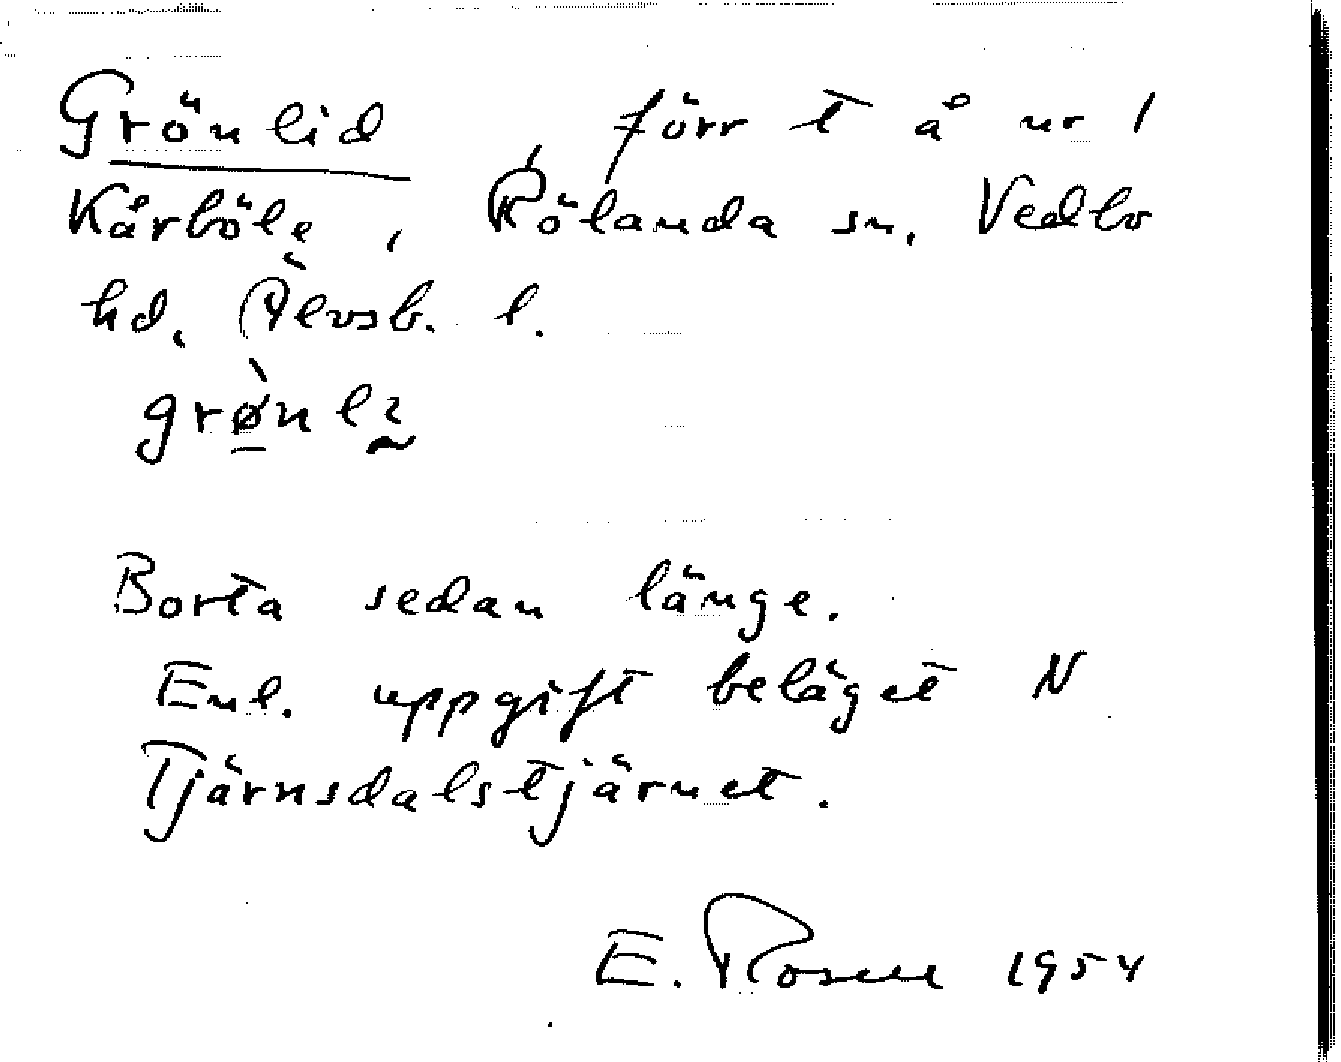 Grönlid , förr t å nr 1
Kårböle , Rölanda sn. Vedbo
hd. Älvsb. l.
grø̀nlı
Borta sedan länge.
Enl. uppgift beläget N
Tjärnsdalstjärnet.
E. Rosell 1954